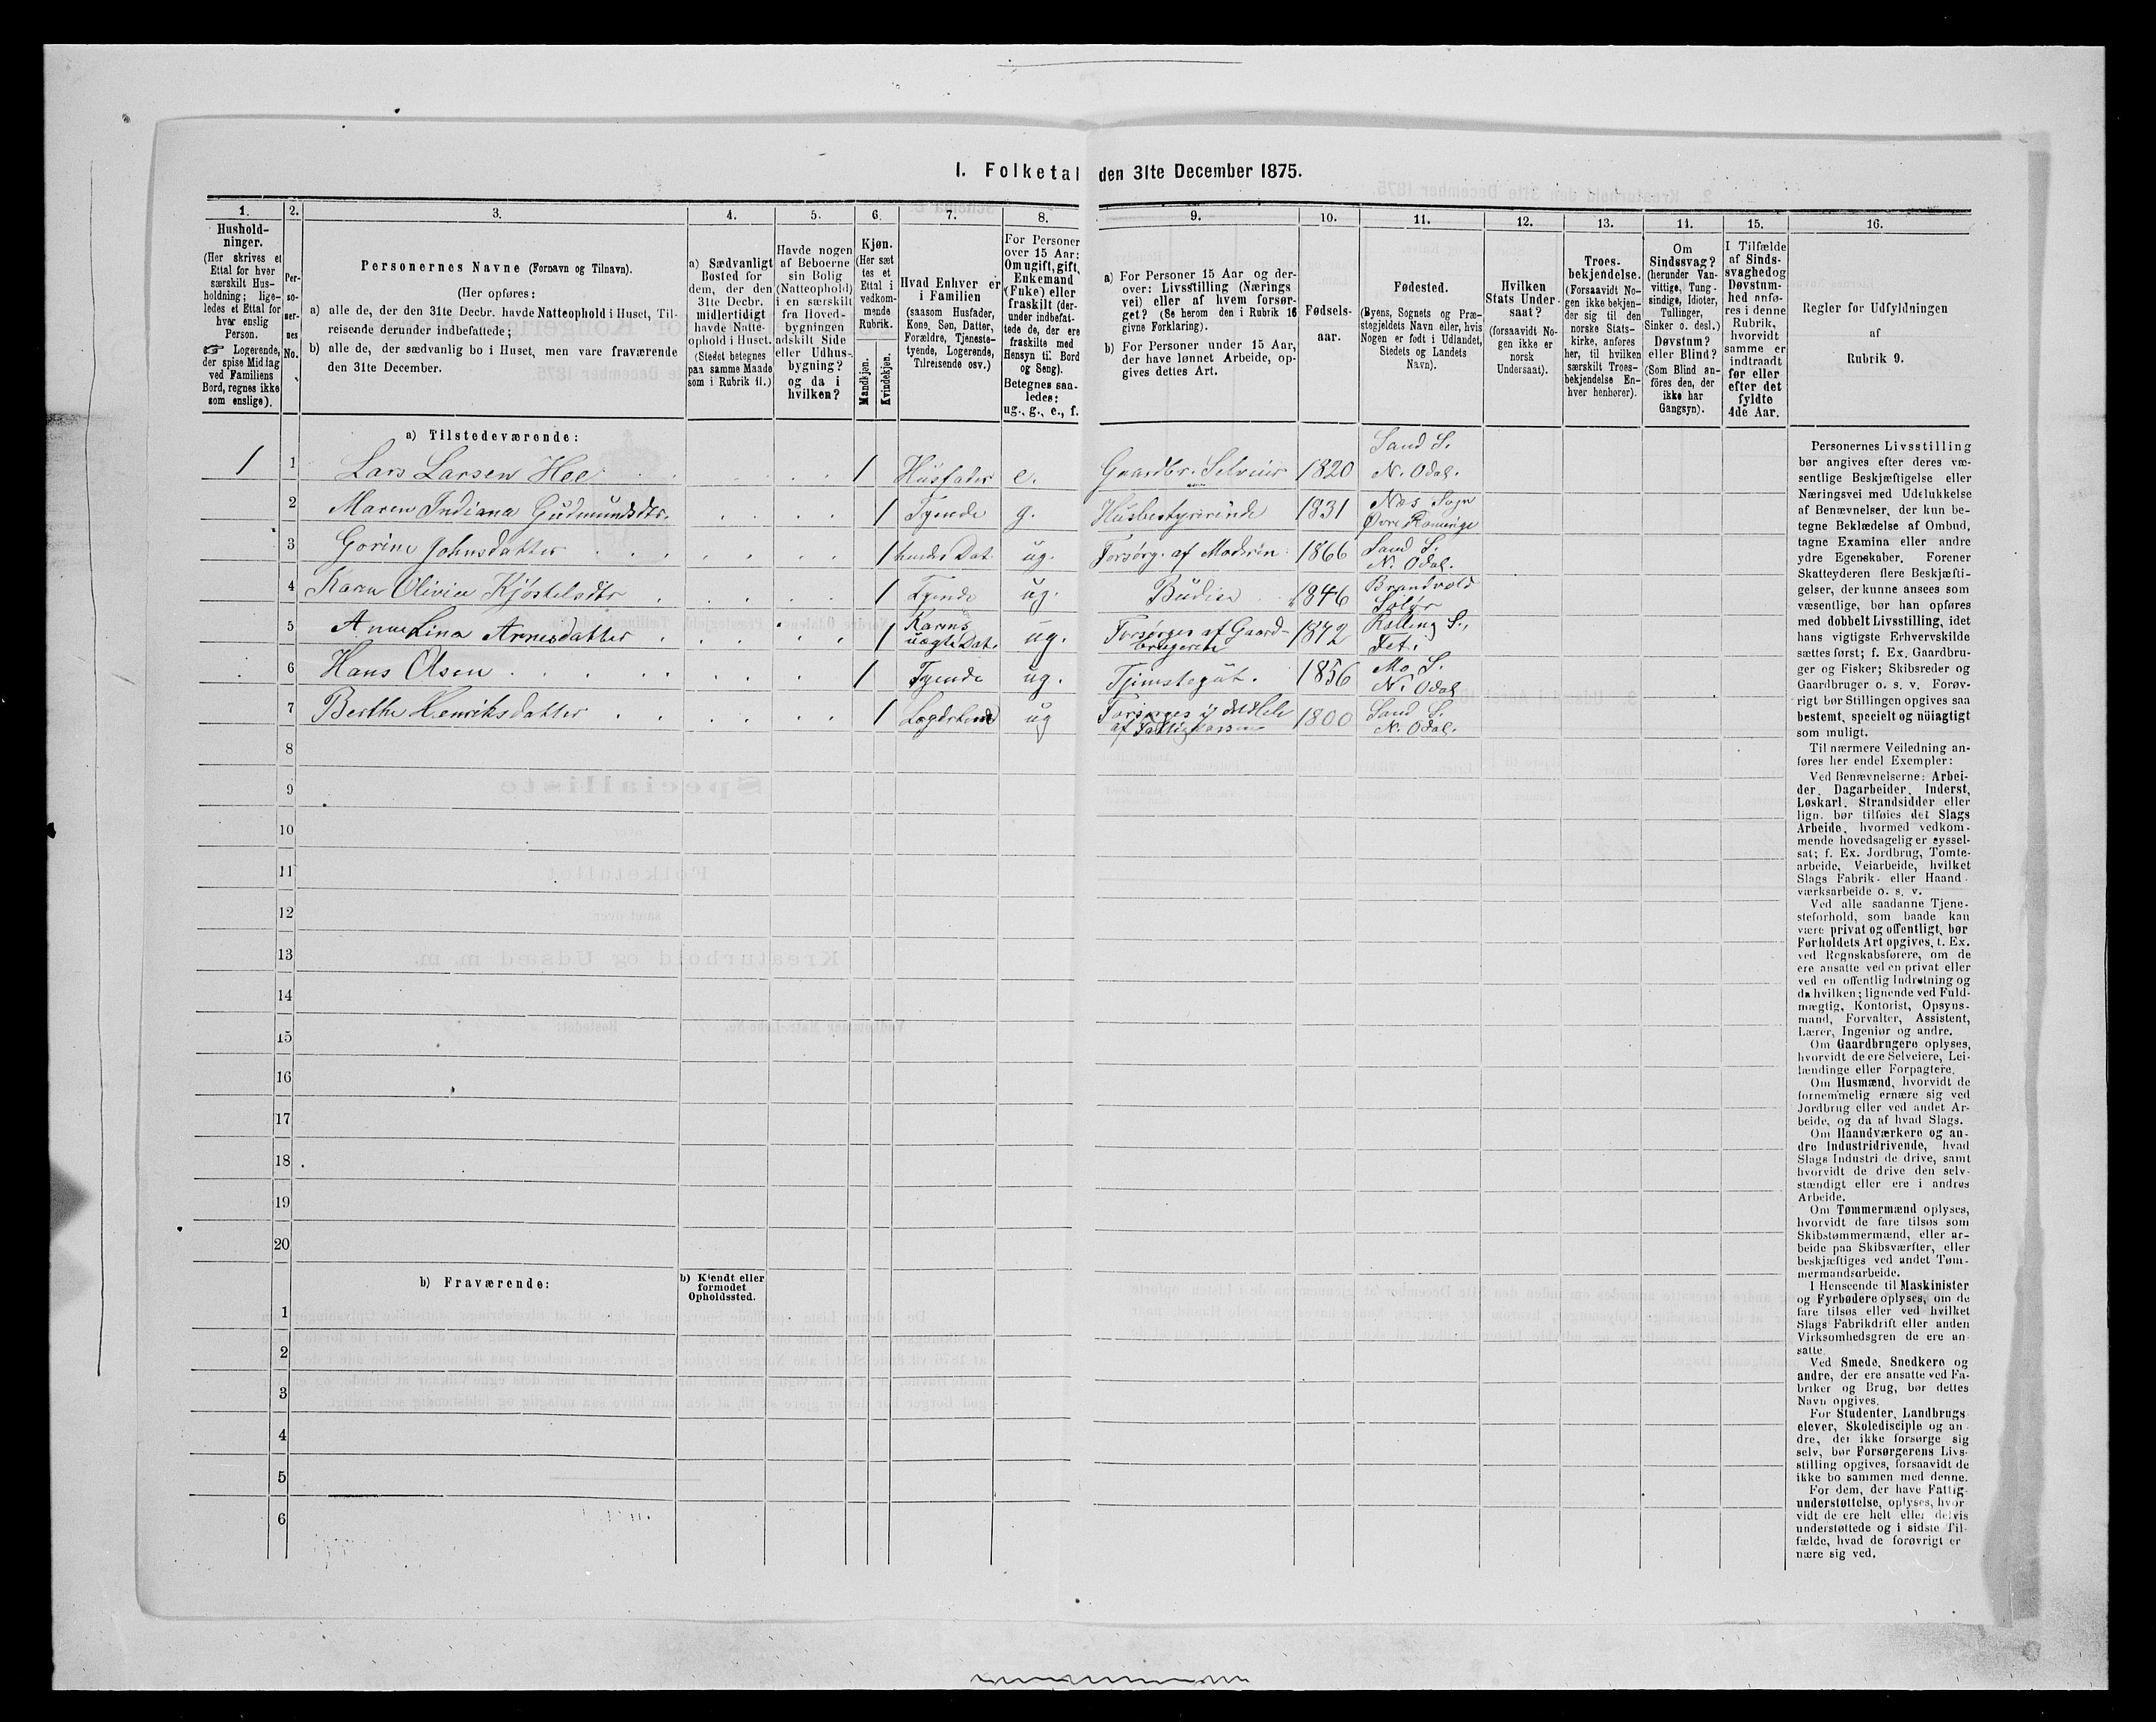 I. Folketal den 31te December 1875.
1.
Hushold-
ninger.
(Her skrives et
Ettal for hver
særskilt Hus-
holdning; lige-
ledes et Ettal for
hver enslig
Person.
☞ Logerende,
der spise Middag
ved Familiens
Bord, regnes ikke
som enslige).
2.
Per-
so-
ner-
nes
No.
3.
Personernes Navne (Fornavn og Tilnavn).
(Her opføres:
a) alle de, der den 31te Decbr. havde Natteophold i Huset, Til-
reisende derunder indbefattede;
b) alle de, der sædvanlig bo i Huset, men vare fraværende
den 31te December.
4.
a) Sædvanligt
Bosted for
dem, der den
31te Decbr.
midlertidigt
havde Natte-
ophold i Huset.
(Stedet betegnes
paa samme Maade
som i Rubrik 11.)
5.
Havde nogen
af Beboerne
sin Bolig
(Natteophold)
i en særskilt
fra Hoved-
bygningen
adskilt Side
eller Udhus-
bygning?
og da i
hvilken?
6.
Kjøn.
(Her sæt
tes et
Ettal i
vedkom-
mende
Rubrik.
Mandkjøn.
Kvindekjøn.
7.
Hvad Enhver er
i Familien
(saasom Husfader,
Kone, Søn, Datter,
Forældre, Tjeneste-
tyende, Logerende,
Tilreisende osv.)
8.
For Personer
over 15 Aar:
Om ugift, gift,
Enkemand
(Enke) eller
fraskilt (der-
under indbefat-
tede de, der ere
fraskilte med
Hensyn til Bord
og Seng).
Betegnes saa-
ledes:
ug., g., e., f.
9.
a) For Personer 15 Aar og der-
over: Livsstilling (Nærings
vei) eller af hvem forsør-
get? (Se herom den i Rubrik 16
givne Forklaring).
b) For Personer under 15 Aar,
der have lønnet Arbeide, op-
gives dettes Art.
10.
Fødsels-
aar.
11.
Fødested.
(Byens, Sognets og Præ-
stegjeldets Navn eller, hvis
Nogen er født i Udlandet,
Stedets og Landets
Navn).
12.
Hvilken
Stats Under-
saat?
(forsaavidt No-
gen ikke er
norsk
Undersaat).
13.
Troes-
bekjendelse.
(Forsaavidt No-
gen ikke bekjen-
der sig til den
norske Stats-
kirke, anføres
her, til hvilken
særskilt Troes-
bekjendelse En-
hver henhører).
14.
Om
Sindssvag?
(herunder Van-
vittige, Tung-
sindige, Idioter,
Tullinger,
Sinker o. desl.)
Døvstum?
eller Blind?
(Som Blind an-
föres den, der
ikke har
Gangsyn).
15.
I Tilfælde
af Sinds-
svaghed og
Døvstum-
hed anfø-
res i denne
Rubrik,
hvorvidt
samme er
indtraadt
før eller
efter det
fyldte
4de Aar.
16.
Regler for Udfyldningen
af
Rubrik 9.
a) Tilstedeværende:
1 1 Lars Larsen Hoe 1 Husfader e. Gaardbr. Selveier 1820 Sand S. N. Odal.
2 Maren Indiana Gudmundsdtr. 1 Tyende g. Husbestyrerinde 1831 Næs Sogn Øvre Romerige
3 Gorine Johnsdatter 1 hendes Dat. ug. Forsørg. af Moderen 1866 Sand S. N. Odal.
4 Karen Olivia Kjøstelsdtr 1 Tyende ug. Budeie 1846 Brandvold Solør
5 Anne Lina Arnesdatter 1 Karens uægte Dat. ug. Forsørges af Gaard- brugeren 1872 S., Fet.
6 Hans Olsen 1 Tyende ug. Tjenstegut. 1856 Mo S. N. Odal
7 Berthe Henriksdatter 1 Lægdslem ug Forsørges af 1800 Sand S. N. Odal.
8
9
10
11
12
13
14
15
16
17
18
19
20
b) Fraværende:
b) Kjendt eller
formodet
Opholdssted.
1
2
3
4
5
6
Personernes Livsstilling
bør angives efter deres væ-
sentlige Beskjæftigelse eller
Næringsvei med Udelukkelse
af Benævnelser, der kun be-
tegne Beklædelse af Ombud,
tagne Examina eller andre
ydre Egenskaber. Forener
Skatteyderen flere Beskjæfti-
gelser, der kunne ansees som
væsentlige, bør han opføres
med dobbelt Livsstilling, idet
hans vigtigste Erhvervskilde
sættes først; f. Ex. Gaardbru-
ger og Fisker; Skibsreder og
Gaardbruger o. s. v. Forøv-
rigt bør Stillingen opgives saa
bestemt, specielt og nöiagtigt
som muligt.
Til nærmere Veiledning an-
føres her endel Exempler:
Ved Benævnelserne: Arbei-
der, Dagarbeider, Inderst,
Løskarl, Strandsidder eller
lign. bør tilføies det Slags
Arbeide, hvormed vedkom-
mende hovedsagelig er syssel-
sat; f. Ex. Jordbrug, Tomte-
arbeide, Veiarbeide, hvilket
Slags Fabrik- eller Haand-
værksarbeide o. s. v.
Ved alle saadanne Tjene-
steforhold, som baade kan
være privat og offentligt, bør
Forholdets Art opgives, t. Ex.
ved Regnskabsførere, om de
ere ansatte ved en privat eller
ved en offentlig Indretning og
da hvilken; lignende ved Fuld-
mægtig, Kontorist, Opsyns-
mand, Forvalter, Assistent,
Lærer, Ingeniør og andre.
Om Gaardbrugere oplyses,
hvorvidt de ere Selveiere, Lei-
lændinge eller Forpagtere.
Om Husmænd, hvorvidt de
fornemmelig ernære sig ved
Jordbrug eller ved andet Ar-
beide, og da af hvad Slags.
Om Haandværkere og an-
dre Industridrivende, hvad
Slags Industri de drive, samt
hvorvidt de drive den selv-
stændigt eller ere i andres
Arbeide.
Om Tømmermænd oplyses,
hvorvidt de fare tilsøs som
Skibstømmermænd, eller ar-
beide paa Skibsværfter, eller
beskjæftiges ved andet Tøm-
mermandsarbeide.
I Henseende til Maskinister
og Fyrbødere oplyses, om de
fare tilsøs eller ved hvilket
Slags Fabrikdrift eller anden
Virksomhedsgren de ere an-
satte.
Ved Smede, Snedkere og
andre, der ere ansatte ved Fa-
briker og Brug, bør dettes
Navn opgives.
For Studenter, Landbrugs
elever, Skoledisciple og an
dre, der ikke forsørge sig
selv, bør Forsørgerens Livs-
stilling opgives, forsaavidt de
ikke bo sammen med denne.
For dem, der have Fattig-
understøttelse, oplyses, hvor
vidt de ere helt eller delvis
understøttede og i sidste Til-
fælde, hvad de forøvrigt er
nære sig ved.